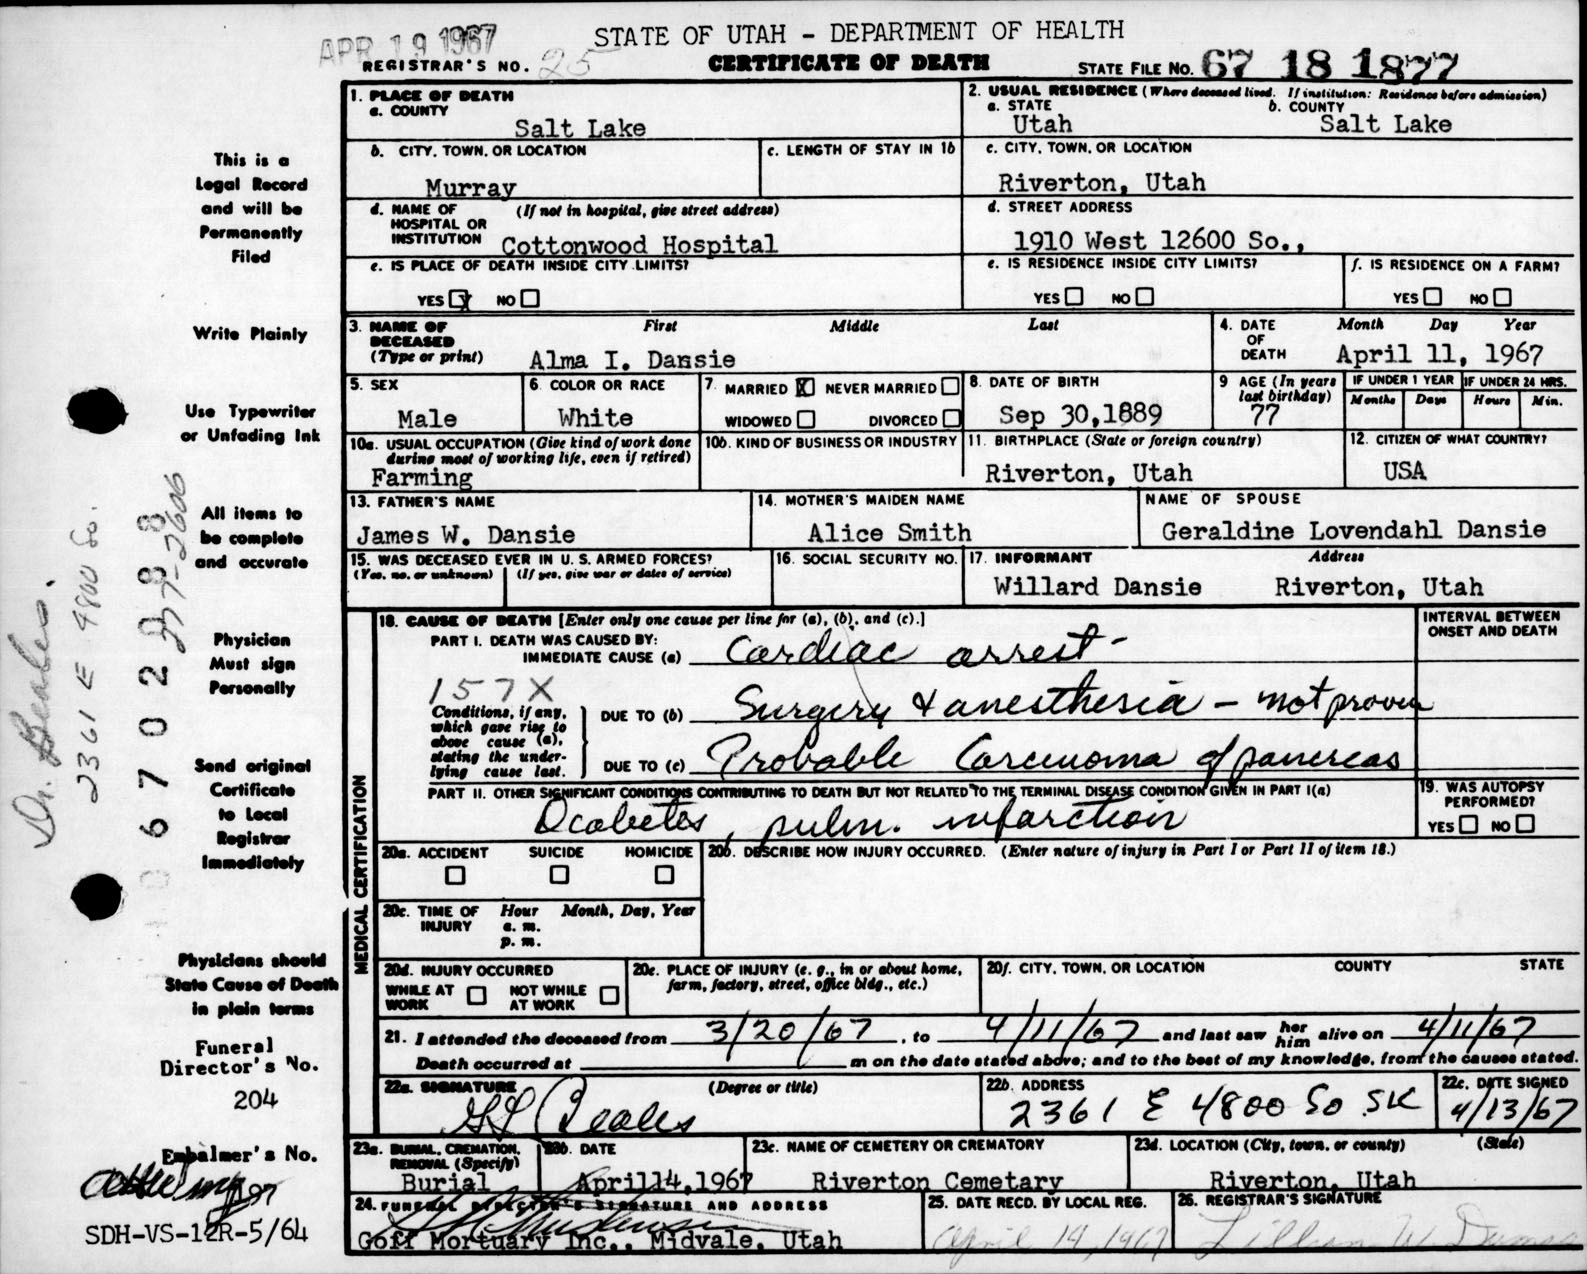 APR 19 1967
STATE OF UTAH - DEPARTMENT OF HEALTH
REGISTRAR'S NO. 25
CERTIFICATE OF DEATH
STATE FILE NO. 67 18 1877
1. PLACE OF DEATH
a. COUNTY
Salt Lake
2. USUAL RESIDENCE (Where deceased lived. If institution: Residence before admission)
a. STATE b. COUNTY
Utah Salt Lake
b. CITY, TOWN, OR LOCATION
Murray
c. LENGTH OF STAY IN 1b
c. CITY, TOWN, OR LOCATION
Riverton, Utah
d. NAME OF HOSPITAL OR INSTITUTION (If not in hospital, give street address)
Cottonwood Hospital
d. STREET ADDRESS
1910 West 12600 So.,
e. IS PLACE OF DEATH INSIDE CITY LIMITS?
YES X NO
e. IS RESIDENCE INSIDE CITY LIMITS?
YES NO
f. IS RESIDENCE ON A FARM?
YES NO
3. NAME OF DECEASED (Type or print) First Middle Last
Alma I. Dansie
4. DATE OF DEATH Month Day Year
April 11, 1967
5. SEX
Male
6. COLOR OR RACE
White
7. MARRIED X NEVER MARRIED
WIDOWED DIVORCED
8. DATE OF BIRTH
Sep 30,1889
9 AGE (In years last birthday)
77
IF UNDER 1 YEAR
Months Days
IF UNDER 24 HRS.
Hours Min.
10a. USUAL OCCUPATION (Give kind of work done during most of working life, even if retired)
Farming
10b. KIND OF BUSINESS OR INDUSTRY
11. BIRTHPLACE (State or foreign country)
Riverton, Utah
12. CITIZEN OF WHAT COUNTRY?
USA
13. FATHER'S NAME
James W. Dansie
14. MOTHER'S MAIDEN NAME
Alice Smith
NAME OF SPOUSE
Geraldine Lovendahl Dansie
15. WAS DECEASED EVER IN U. S. ARMED FORCES?
(Yes, no, or unknown) (If yes, give war or dates of service)
16. SOCIAL SECURITY NO.
17. INFORMANT Address
Willard Dansie Riverton, Utah
MEDICAL CERTIFICATION
18. CAUSE OF DEATH [Enter only one cause per line for (a), (b), and (c).]
INTERVAL BETWEEN ONSET AND DEATH
PART I. DEATH WAS CAUSED BY:
IMMEDIATE CAUSE (a) Cardiac arrest-
157X
Conditions, if any, which gave rise to above cause (a), stating the underlying cause last.
DUE TO (b) Surgery & anesthesia - not proven
DUE TO (c) Probable Carcinoma of pancreas
PART II. OTHER SIGNIFICANT CONDITIONS CONTRIBUTING TO DEATH BUT NOT RELATED TO THE TERMINAL DISEASE CONDITION GIVEN IN PART I(a)
Diabetes, pulm. infarction
19. WAS AUTOPSY PERFORMED?
YES NO
20a. ACCIDENT SUICIDE HOMICIDE
20b. DESCRIBE HOW INJURY OCCURRED. (Enter nature of injury in Part I or Part II of item 18.)
20c. TIME OF INJURY Hour Month, Day, Year
a. m.
p. m.
20d. INJURY OCCURRED
WHILE AT WORK NOT WHILE AT WORK
20e. PLACE OF INJURY (e. g., in or about home, farm, factory, street, office bldg., etc.)
20f. CITY, TOWN, OR LOCATION COUNTY STATE
21. I attended the deceased from 3/20/67, to 4/11/67 and last saw her him alive on 4/11/67
Death occurred at m on the date stated above; and to the best of my knowledge, from the causes stated.
22a. SIGNATURE (Degree or title)
Beales
22b. ADDRESS
2361 E 4800 So SK
22c. DATE SIGNED
4/13/67
23a. BURIAL, CREMATION, REMOVAL (Specify)
Burial
23b. DATE
April 14, 1967
23c. NAME OF CEMETERY OR CREMATORY
Riverton Cemetary
23d. LOCATION (City, town, or county) (State)
Riverton, Utah
24. FUNERAL DIRECTOR'S SIGNATURE AND ADDRESS
Goff Mortuary Inc., Midvale, Utah
25. DATE RECD. BY LOCAL REG.
April 14, 1967
26. REGISTRAR'S SIGNATURE
Lillian W.
This is a
Legal Record
and will be
Permanently
Filed
Write Plainly
Use Typewriter
or Unfading Ink
All items to
be complete
and accurate
Physician
Must sign
Personally
Send original
Certificate
to Local
Registrar
Immediately
Physicians should
State Cause of Death
in plain terms
Funeral
Director's No.
204
Embalmer's No.
197
SDH-VS-12R-5/64
Dr. Beales.
2361 E 4800 So.
277-2606